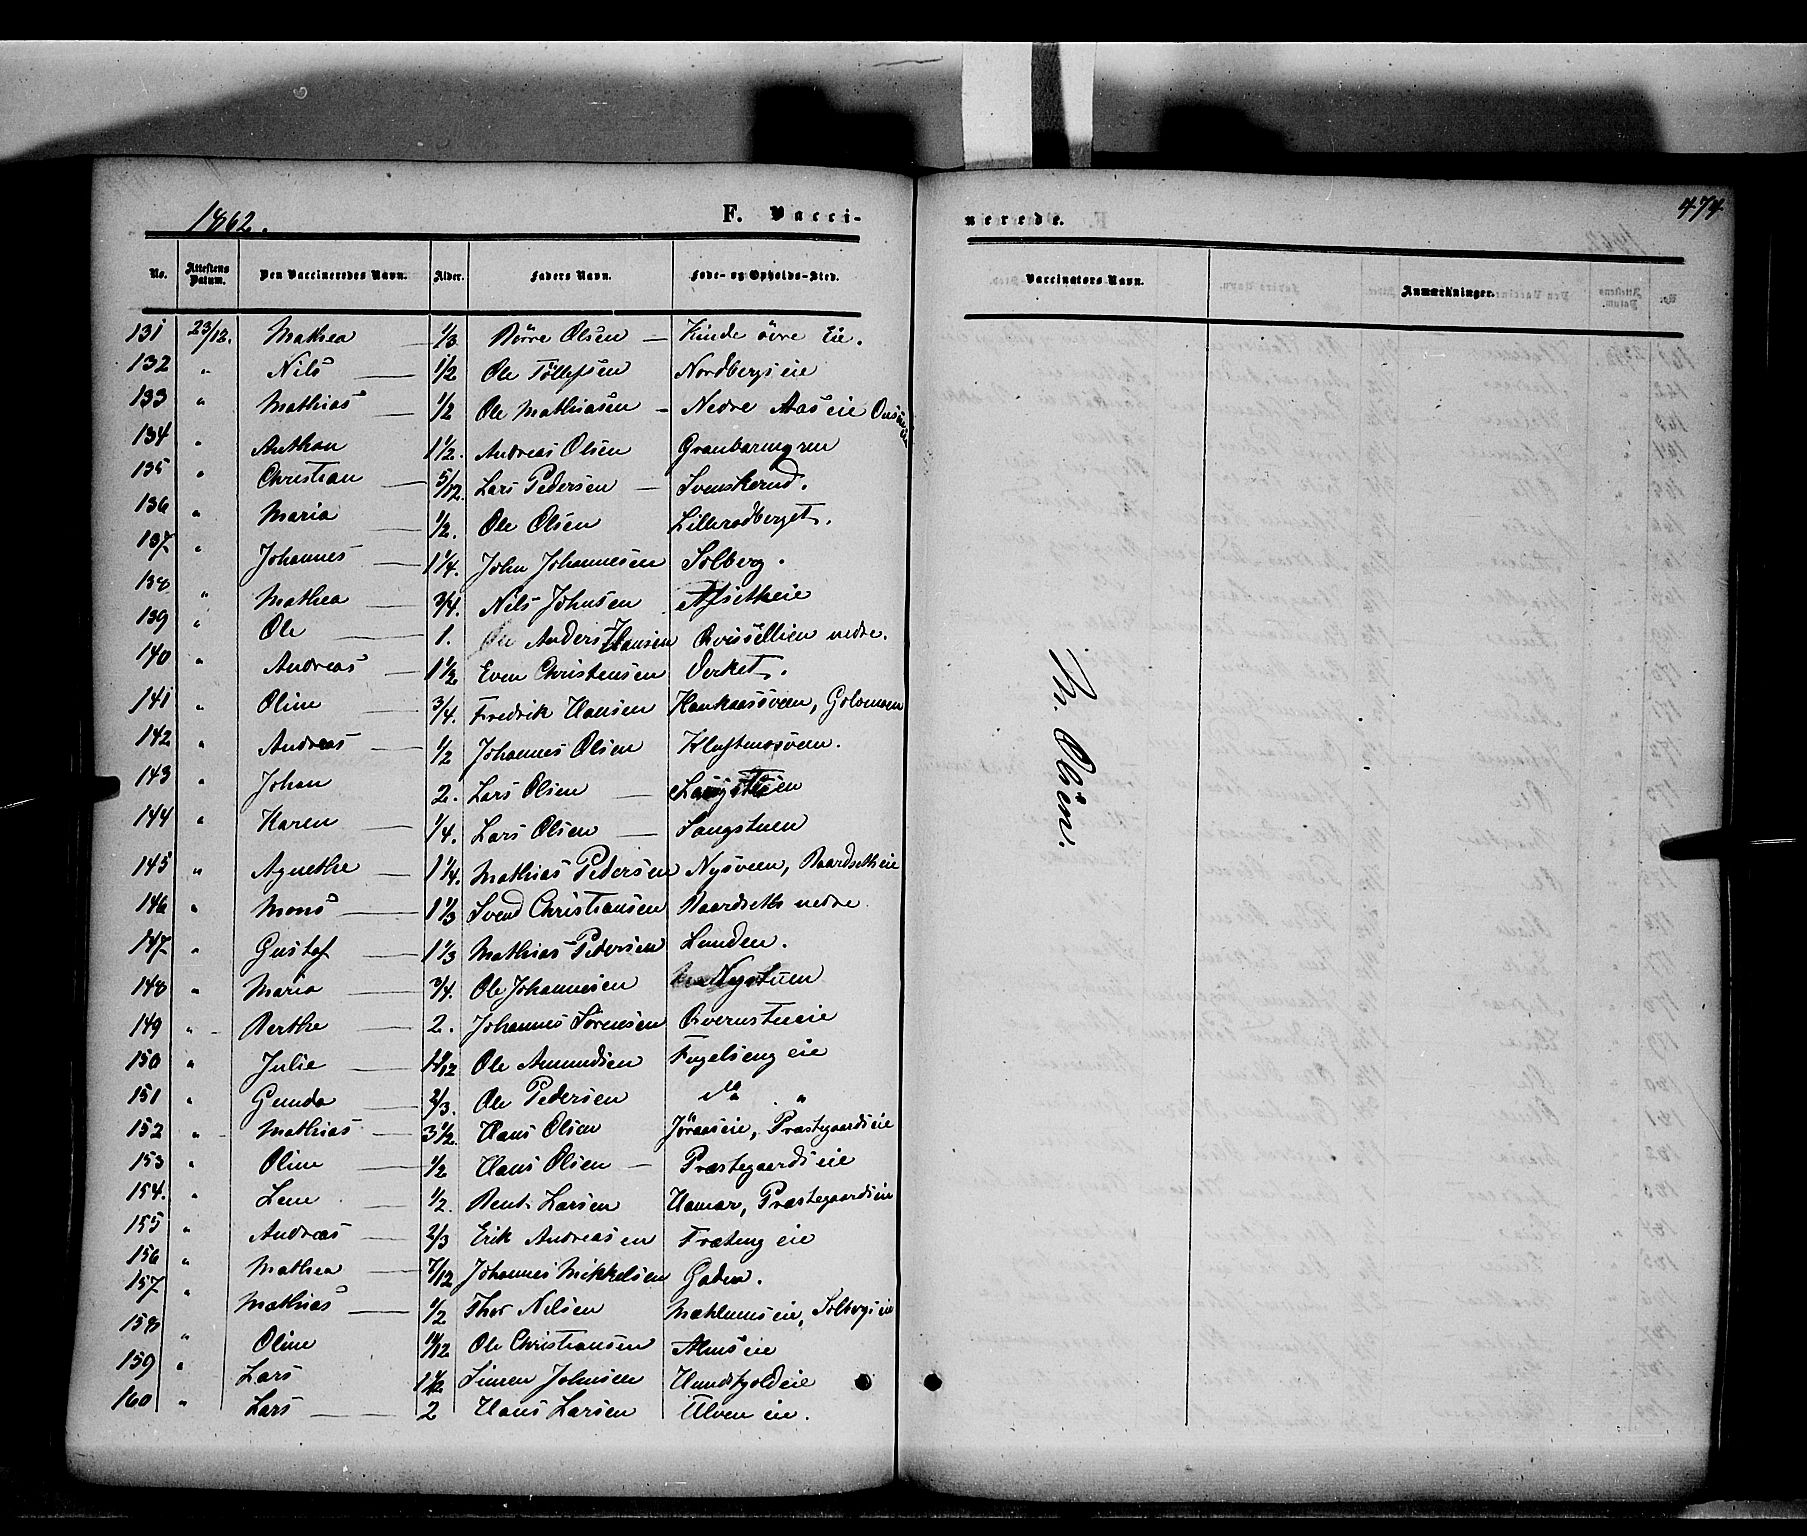 1862. F. Vacci- nerede. 474
No. Attestens Datum. Den Vaccineredes Navn. Alder. Faders Navn. Føde- og Opholds-Sted. Vaccinators Navn. Anmærkninger.
131 23/12. Mathea 1/3 Børre Olsen Kinde övre Eie.
132 " Nils 1/2 Ole Tollefsen Nordbergseie
133 " Mathias 1/2 Ole Mathiasen Nedre Aaseie
134 " Anthon 1 1/2. Andreas Olsen
135 " Christian 5/12. Lars Pedersen Svenskerud.
136 " Maria 1/2. Ole Olsen Lillerodberget.
137 " Johannes 1 1/4. John Johannesen Solberg.
138 " Mathea 3/4. Nils Johnsen
139 " Ole 1. Anders Hansen Qvisellien nedre.
140 " Andreas 1 1/2 Even Christensen Verket.
141 " Oline 3/4. Fredrik Hansen
142 " Andreas 1/2 Johannes Olsen
143 " Johan 2. Lars Olsen Langstuen
144 " Karen 1/4. Lars Olsen Langstuen
145 " Agnethe 1 1/4. Mathias Pedersen Nysveen, Baardsetheie
146 " Mons 1 1/3 Svend Christiansen Baardseth nedre
147 " Gustaf 1 1/3 Mathias Pedersen Lunden.
148 " Maria 3/4. Ole Johannesen Nystuen
149 " Berthe 2. Johannes Sørensen Qvernstueie
150 " Julie 11/12 Ole Amundsen Fugelseng eie
151 " Gunda 2/3. Ole Pedersen do "
152 " Mathias 3 1/2. Hans Olsen Jøraaseie, Præstegaardseie
153 " Oline 1/2 Hans Olsen Præstegaardseie
154. " Lene 1/2. Bent Larsen Hamar, Præstegaardseie
155 " Andreas 2/3 Erik Andreasen Fræteng eie
156 " Mathea 7/12 Johannes Mikkelsen Gaden.
157 " Mathias 1/2 Thor Nilsen Mæhlumseie, Solbergseie
158 " Oline Ole Christiansen Almseie
159 " Lars Simen Johnsen Hundskjoldeie
160 " Lars 2 Hans Larsen Ulven eie.
Olsen.